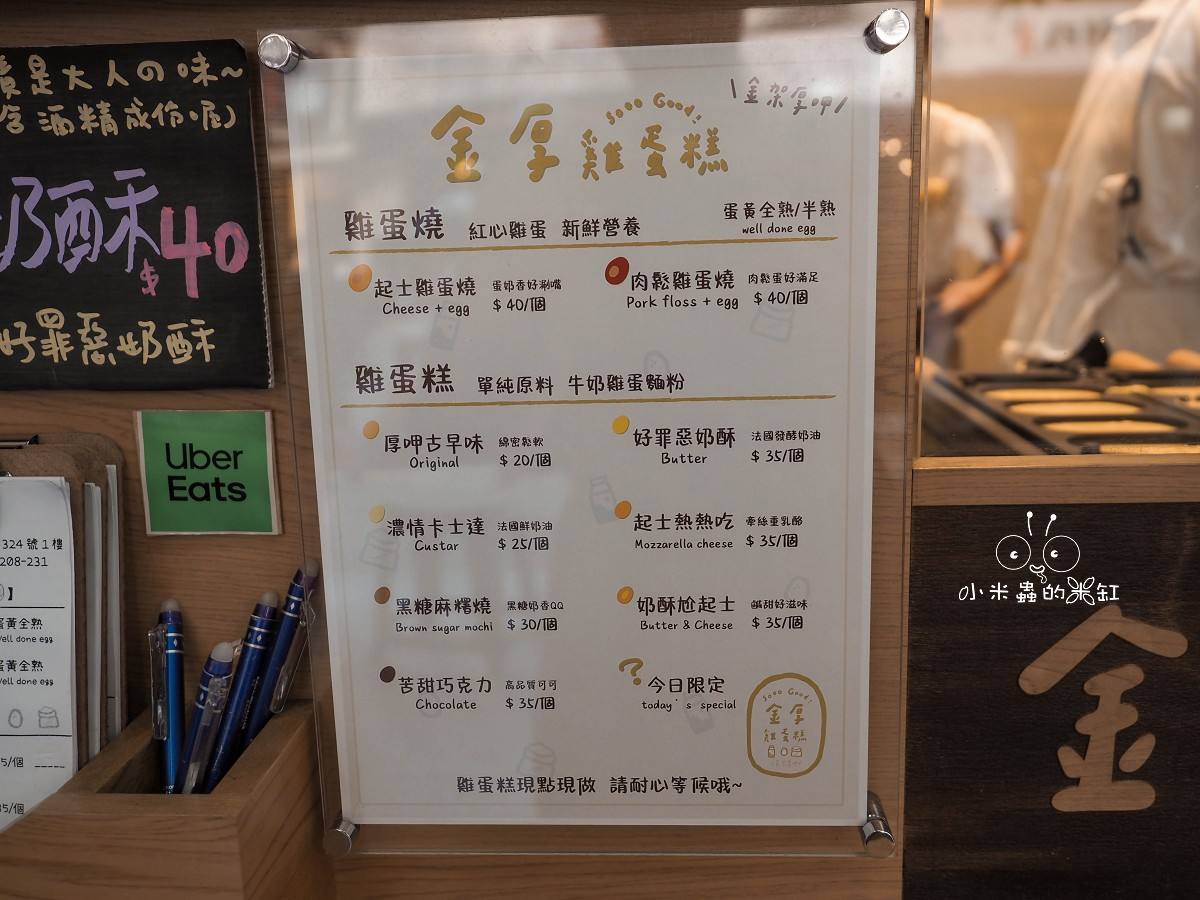 責是大人の味~
含酒精成份喔)
奶酥
$40
好罪惡奶酥
Uber
Eats
324 號 1 樓
208-231
】
蛋黃全熟
well done egg
蛋黃全熟
well done egg
5/個
35/個
\金架厚呷/
Sooo Good!
金厚雞蛋糕
雞蛋燒 紅心雞蛋 新鮮營養
蛋黃全熟/半熟
well done egg
起士雞蛋燒 蛋奶香好涮嘴
Cheese + egg $ 40/個
肉鬆雞蛋燒 肉鬆蛋好滿足
Pork floss + egg $ 40/個
雞蛋糕 單純原料 牛奶雞蛋麵粉
厚呷古早味 綿密鬆軟
Original $ 20/個
好罪惡奶酥 法國發酵奶油
Butter $ 35/個
濃情卡士達 法國鮮奶油
Custar $ 25/個
起士熱熱吃 牽絲重乳酪
Mozzarella cheese $ 35/個
黑糖麻糬燒 黑糖奶香QQ
Brown sugar mochi $ 30/個
奶酥尬起士 鹹甜好滋味
Butter & Cheese $ 35/個
苦甜巧克力 高品質可可
Chocolate $ 35/個
?
今日限定
today`s special
Sooo Good!
金厚
雞蛋糕
雞蛋糕現點現做 請耐心等候哦~
小米蟲的米缸
金